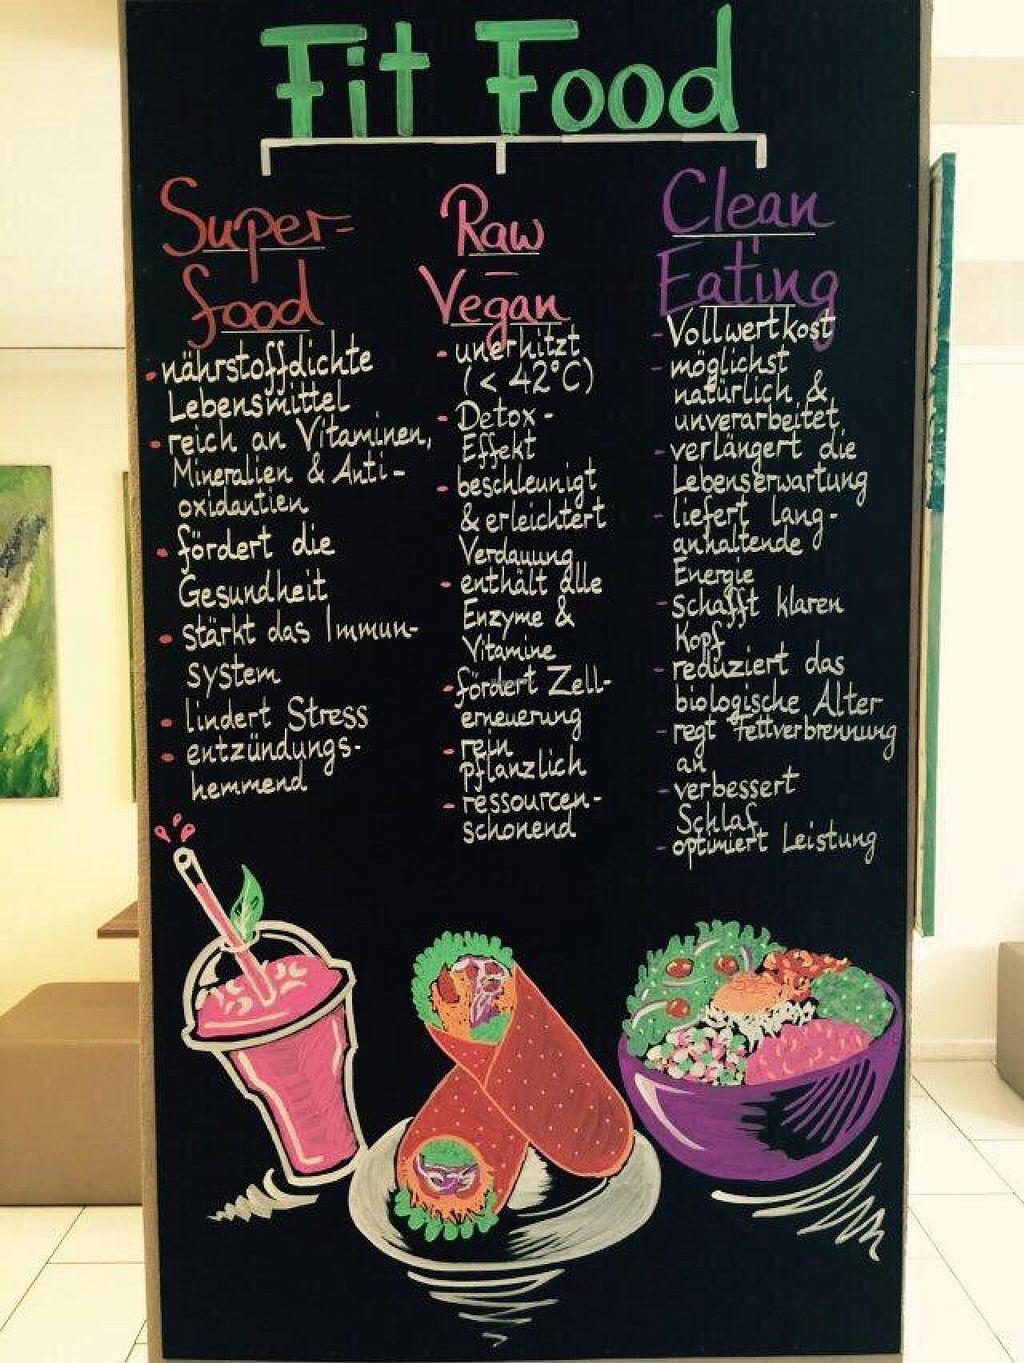 Fit Food
Super-
food
- nährstoffdichte
Lebensmittel
- reich an Vitaminen,
Mineralien & Anti-
oxidantien
- fördert die
Gesundheit
- stärkt das Immun-
system
- lindert Stress
- entzündungs-
hemmend
Raw
-
Vegan
- unerhitzt
(< 42°C)
- Detox-
Effekt
- beschleunigt
& erleichtert
Verdauung
- enthält alle
Enzyme &
Vitamine
- fördert Zell-
erneuerung
- rein
pflanzlich
- ressourcen-
schonend
Clean
Eating
- Vollwertkost
- möglichst
natürlich &
unverarbeitet
- verlängert die
Lebenserwartung
- liefert lang-
anhaltende
Energie
- schafft klaren
Kopf
- reduziert das
biologische Alter
- regt Fettverbrennung
an
- verbessert
Schlaf
- optimiert Leistung